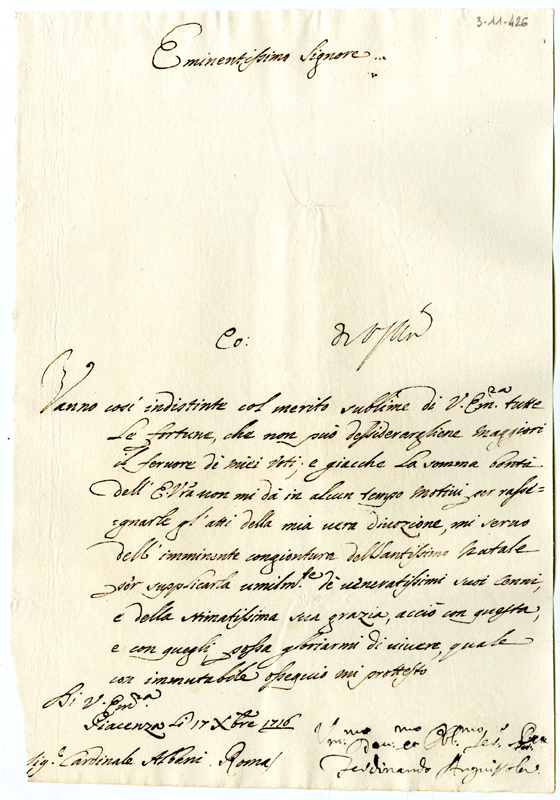 3-11-426
Eminentissimo Signore
Co:
Vanno cosi indistinte col merito sublime di V. Em.za tutte
Le fortune, che non può dessiderargliene maggiori
il fervore de miei voti; e giacche la somma bontà
dell' E. Vra non mi dà in alcun tempo motivi per rasse=
=gnarle gl' atti della mia vera divozione, mi servo
dell' imminente congiontura del Santissimo Natale
per supplicarla umilm.te de veneratissimi suoi cenni,
e della stimatissima sua grazia, acciò con questa,
e con quegli possa gloriarmi di vivere, quale
con immutabile ossequio mi protesto
Di V. Em.za
Piacenza Li 17 Xbre 1716
Sig.r Cardinale Albani. Roma
Um.mo Dev.mo et Obl.mo Ser.
Ferdinando Anguissola